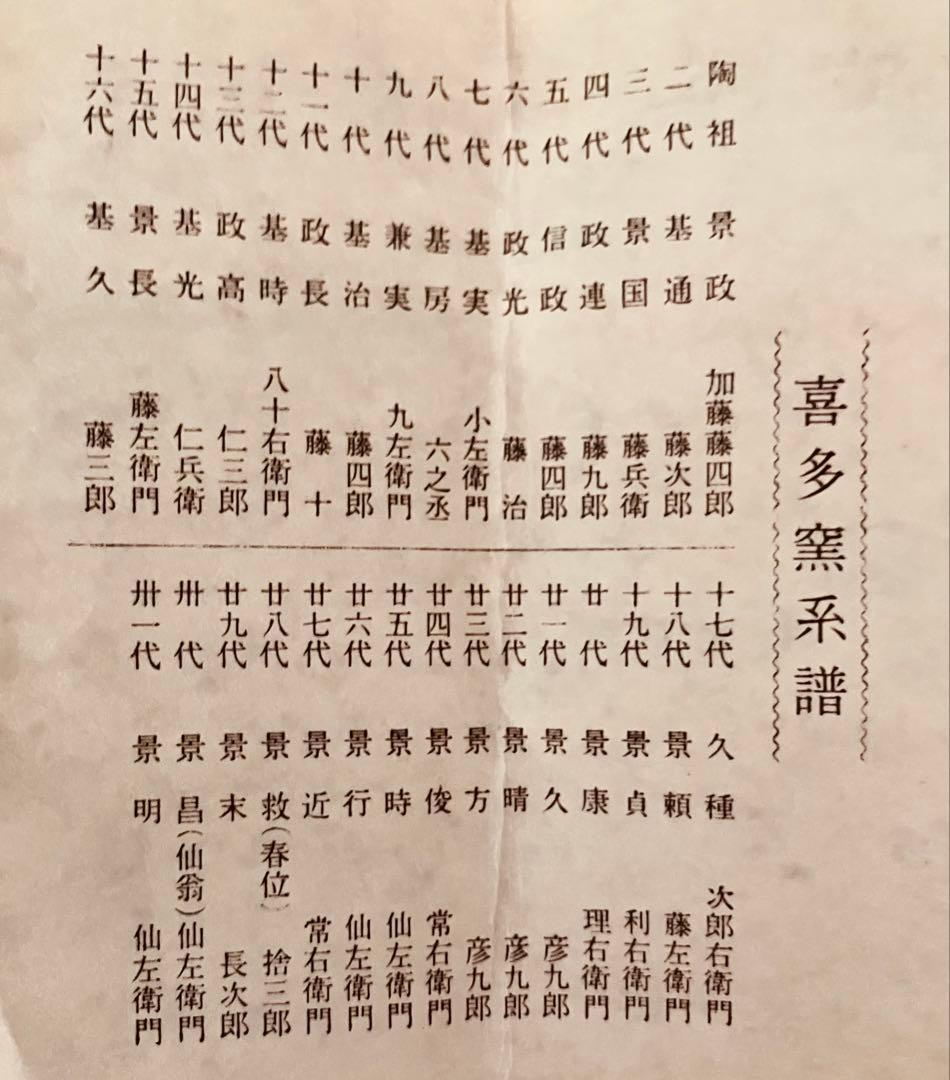 喜多窯系譜
陶祖 景政 加藤藤四郎
二代 基通 藤次郎
三代 景国 藤兵衛
四代 政連 藤九郎
五代 信政 藤四郎
六代 政光 藤治
七代 基実 小左衛門
八代 基房 六之丞
九代 兼実 九左衛門
十代 基治 藤四郎
十一代 政長 藤十
十二代 基時 八十右衛門
十三代 政高 仁三郎
十四代 基光 仁兵衛
十五代 景長 藤左衛門
十六代 基久 藤三郎
十七代 久種 次郎右衛門
十八代 景頼 藤左衛門
十九代 景貞 利右衛門
廿代 景康 理右衛門
廿一代 景久 彦九郎
廿二代 景晴 彦九郎
廿三代 景方 彦九郎
廿四代 景俊 常右衛門
廿五代 景時 仙左衛門
廿六代 景行 仙左衛門
廿七代 景近 常右衛門
廿八代 景救(春位) 捨三郎
廿九代 景末 長次郎
卅代 景昌(仙翁)仙左衛門
卅一代 景明 仙左衛門